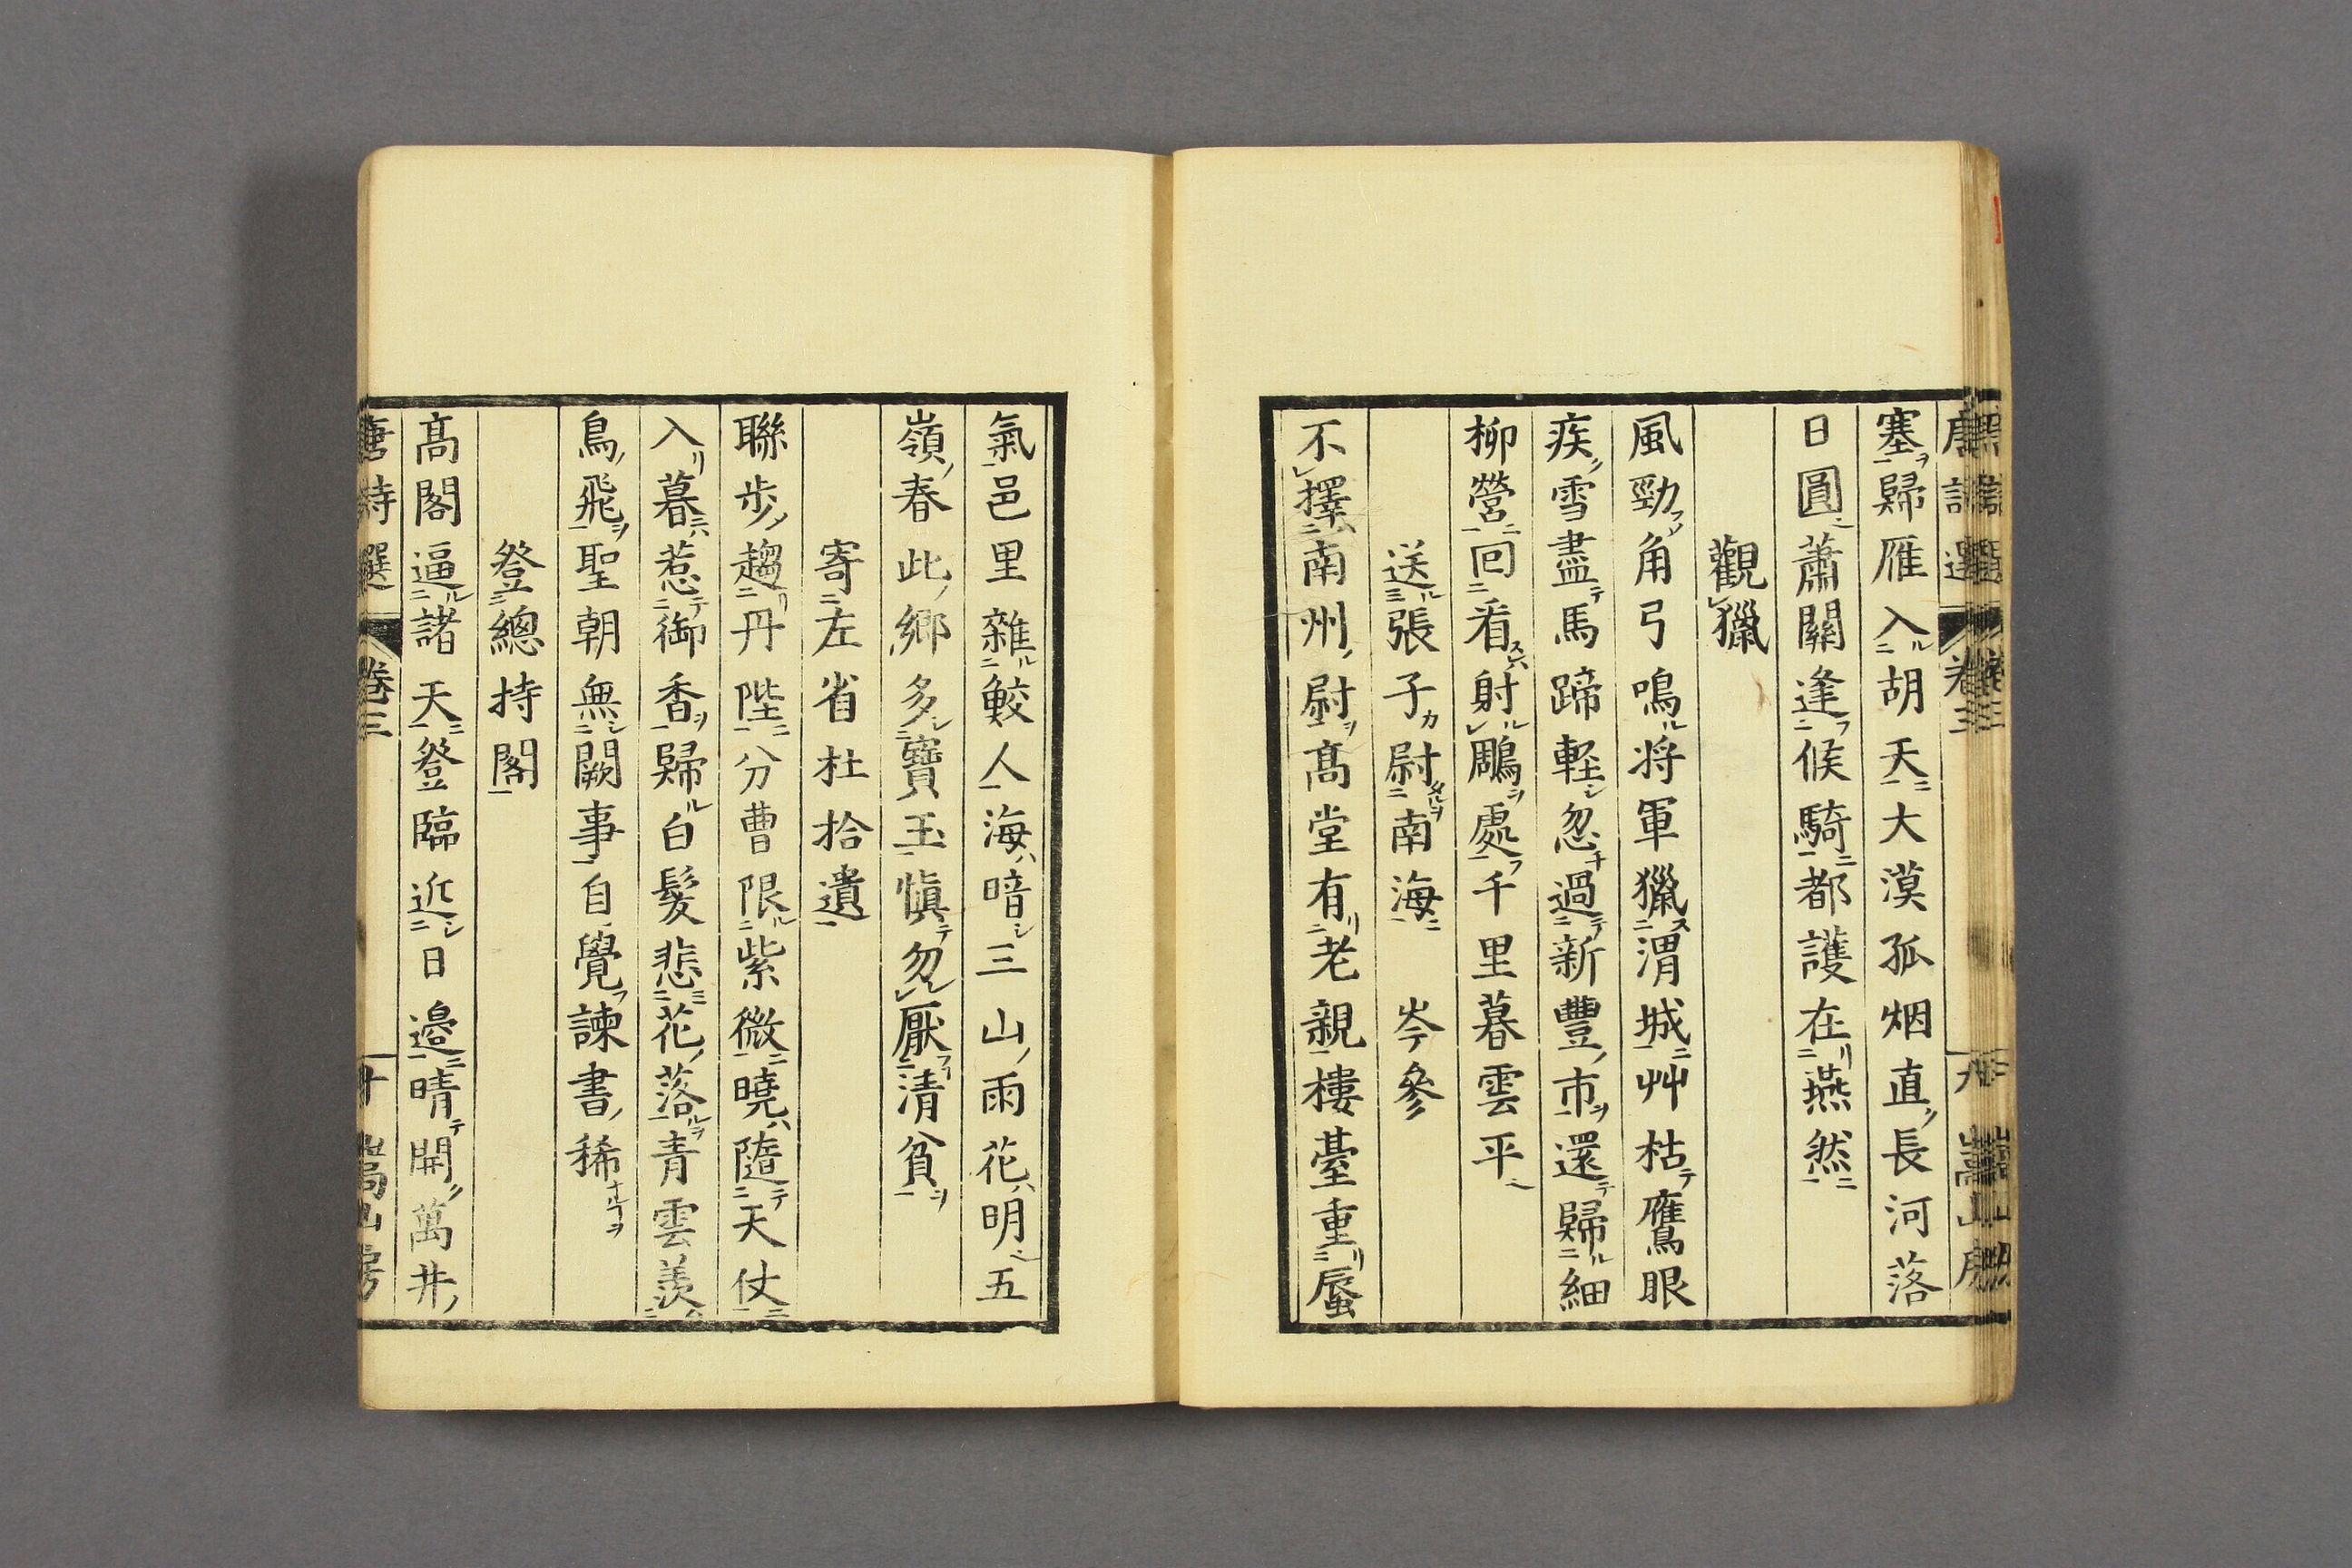 塞歸雁入胡天大漠孤烟直長河落
日圓蕭關逢候騎都護在燕然
觀獵
風勁角弓鳴将軍獵渭城艸枯鷹眼
疾雪盡馬蹄軽忽過新豐市還歸細
柳營回看射鵰處千里暮雲平
送張子尉南海 岑參
不擇南州尉髙堂有老親樓臺重蜃
氣邑里雜鮫人海暗三山雨花明五
嶺春此鄉多寶玉愼勿厭清貧
寄左省杜拾遺
聯步趨丹陛分曹限紫微曉隨天仗
入暮惹御香歸白髮悲花落青雲羨
鳥飛聖朝無闕事自覺諫書稀
登總持閣
髙閣逼諸天登臨近日邊晴開萬井
唐詩選 卷三 十 嵩山房